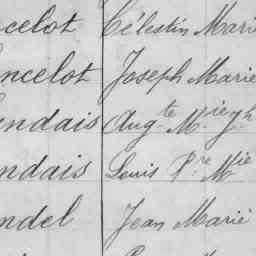 celot Célestin Marie
ncelot Joseph Marie
endais Aug.te M.ie J.h
ndais Louis P.re M.ie
ndel Jean Marie